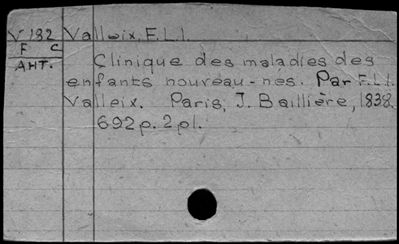 V 182 Valleix, F. L. I.
F C
AHT. Clinique des maladies des
enfants nouveau-nes. Par F. L. I.
Valleix. Paris, J. Baillière, 1838.
692 p. 2 pl.